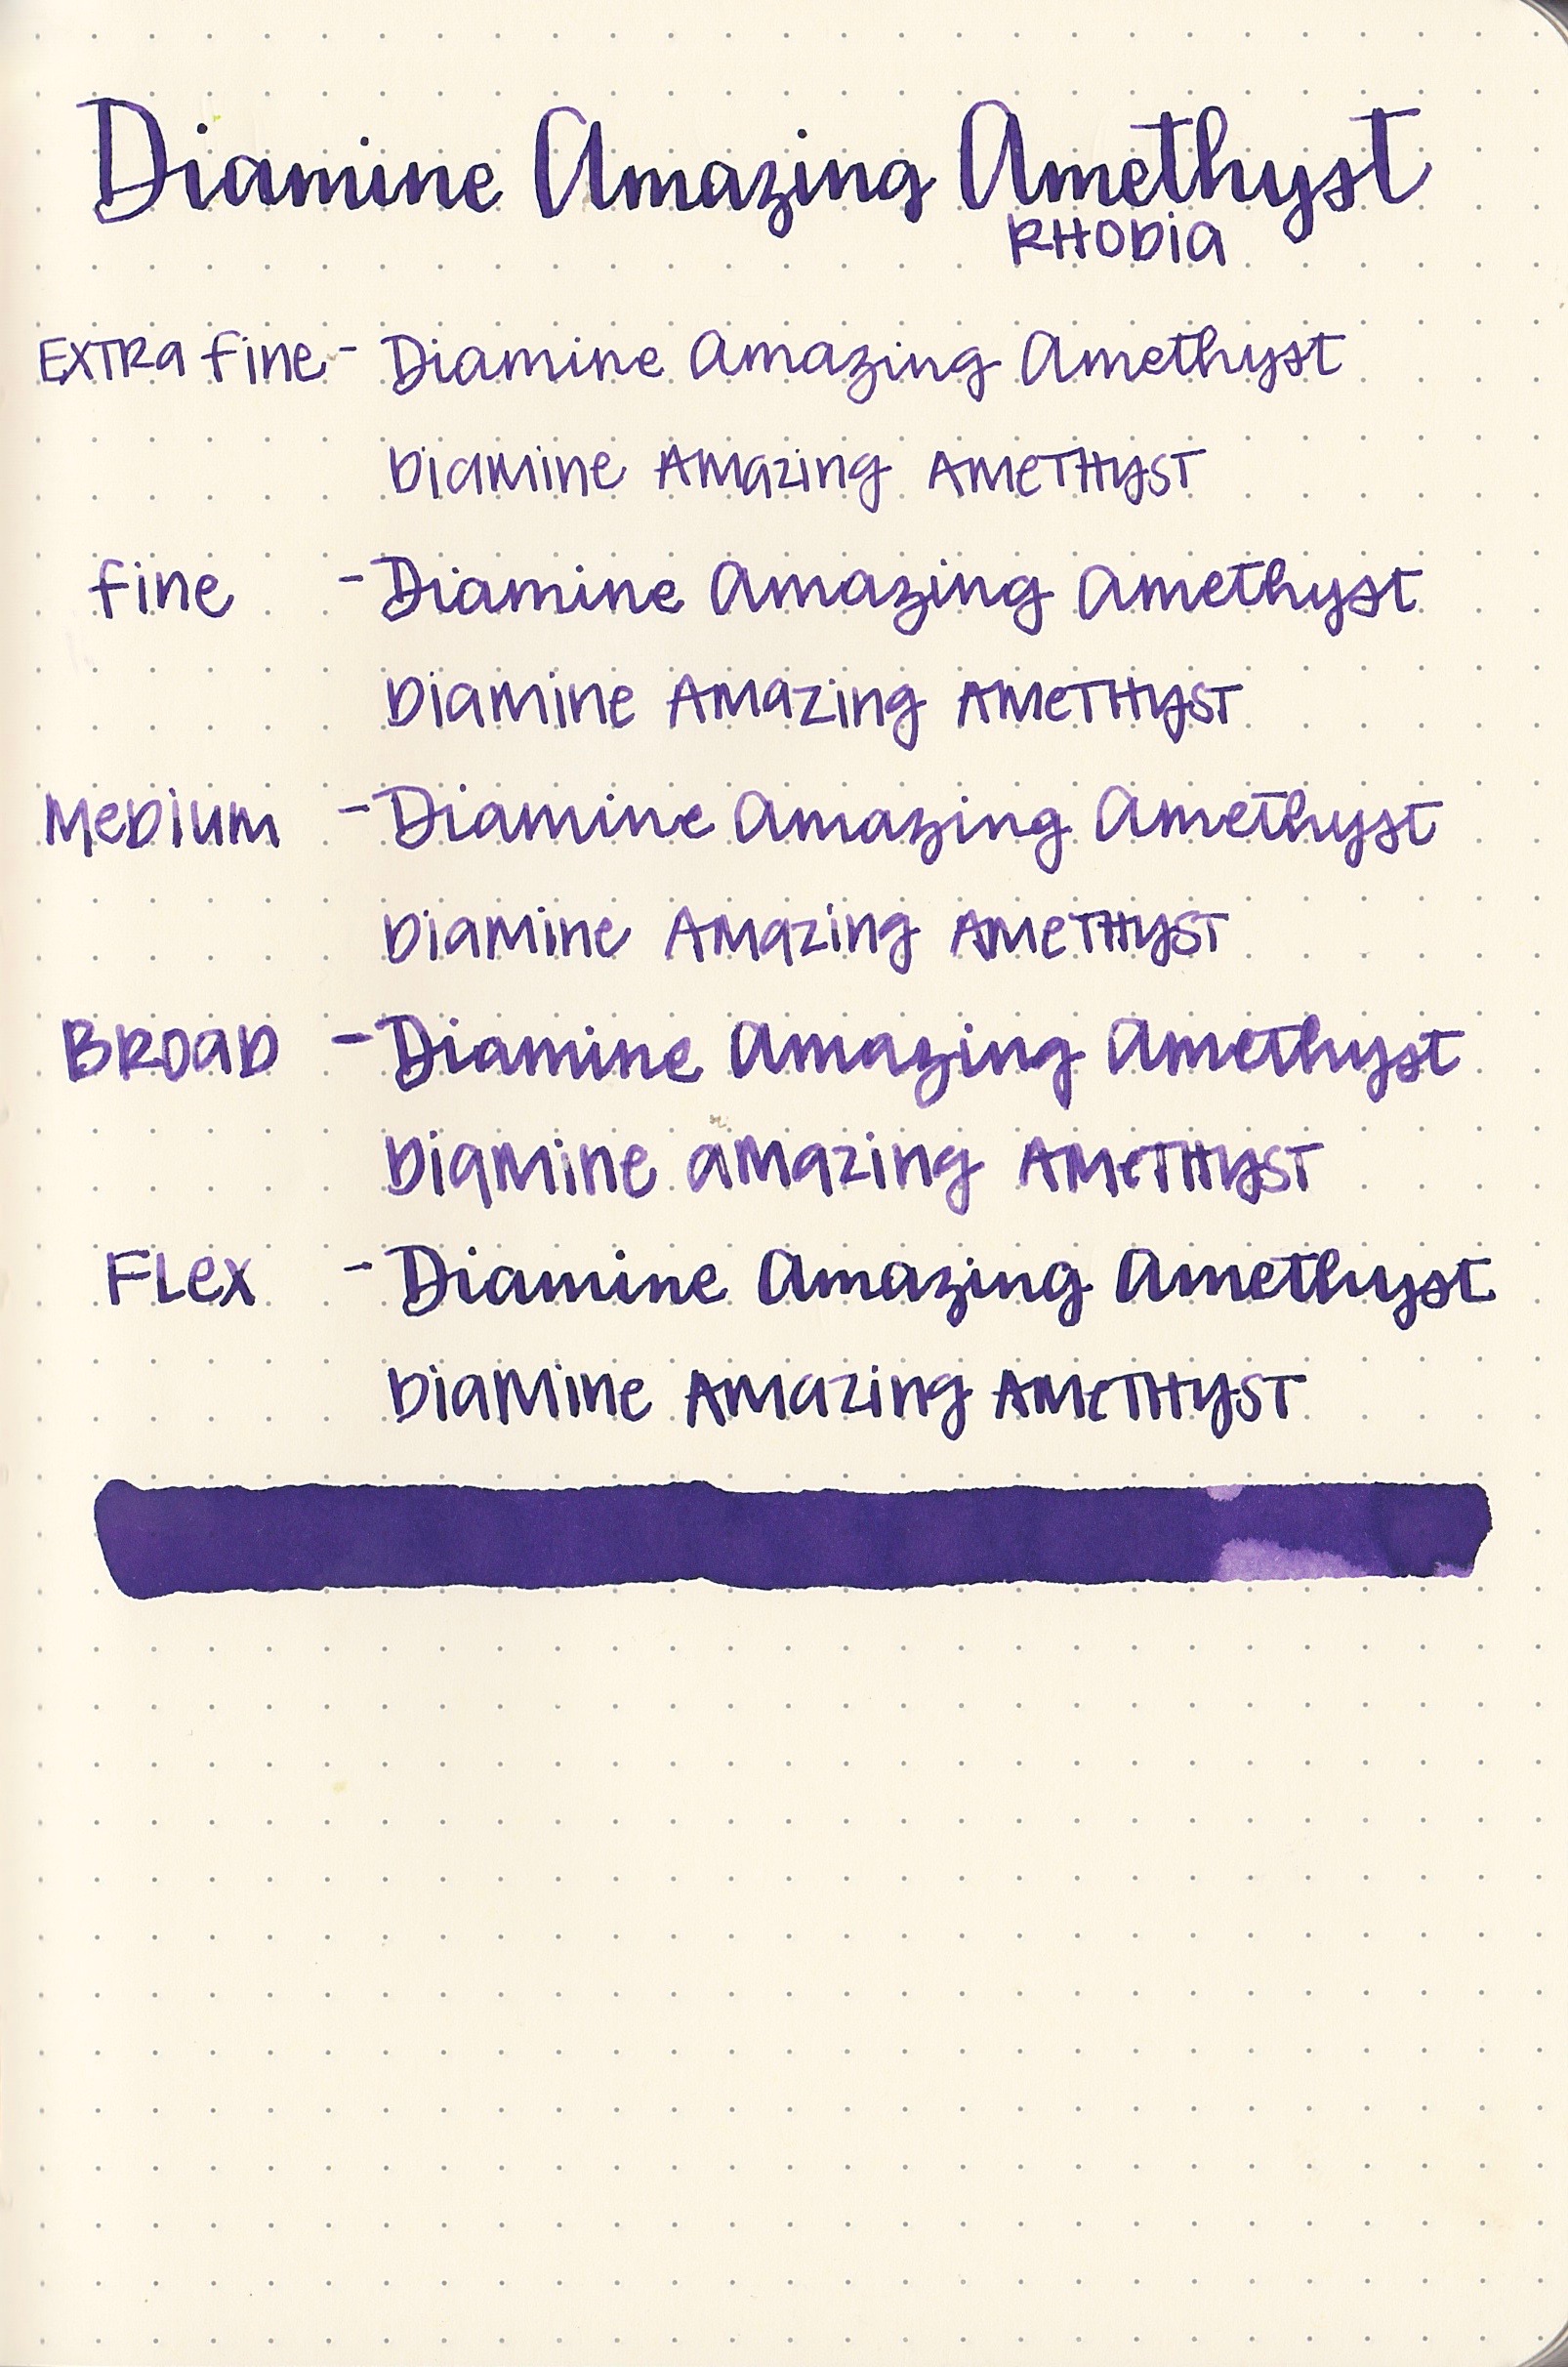 Diamine Amazing Amethyst
RHODIA
EXTRA fine - Diamine Amazing Amethyst
DiaMine AMazing AMeTHyST
fine - Diamine Amazing Amethyst
DiaMine AMaZing AMeTHyST
MeDiuM - Diamine Amazing Amethyst
DiaMine AMazing AMeTHyST
BROaD - Diamine Amazing Amethyst
DiaMine aMazing AMeTHyST
FLex - Diamine Amazing Amethyst
DiaMine AMazing AMeTHyST